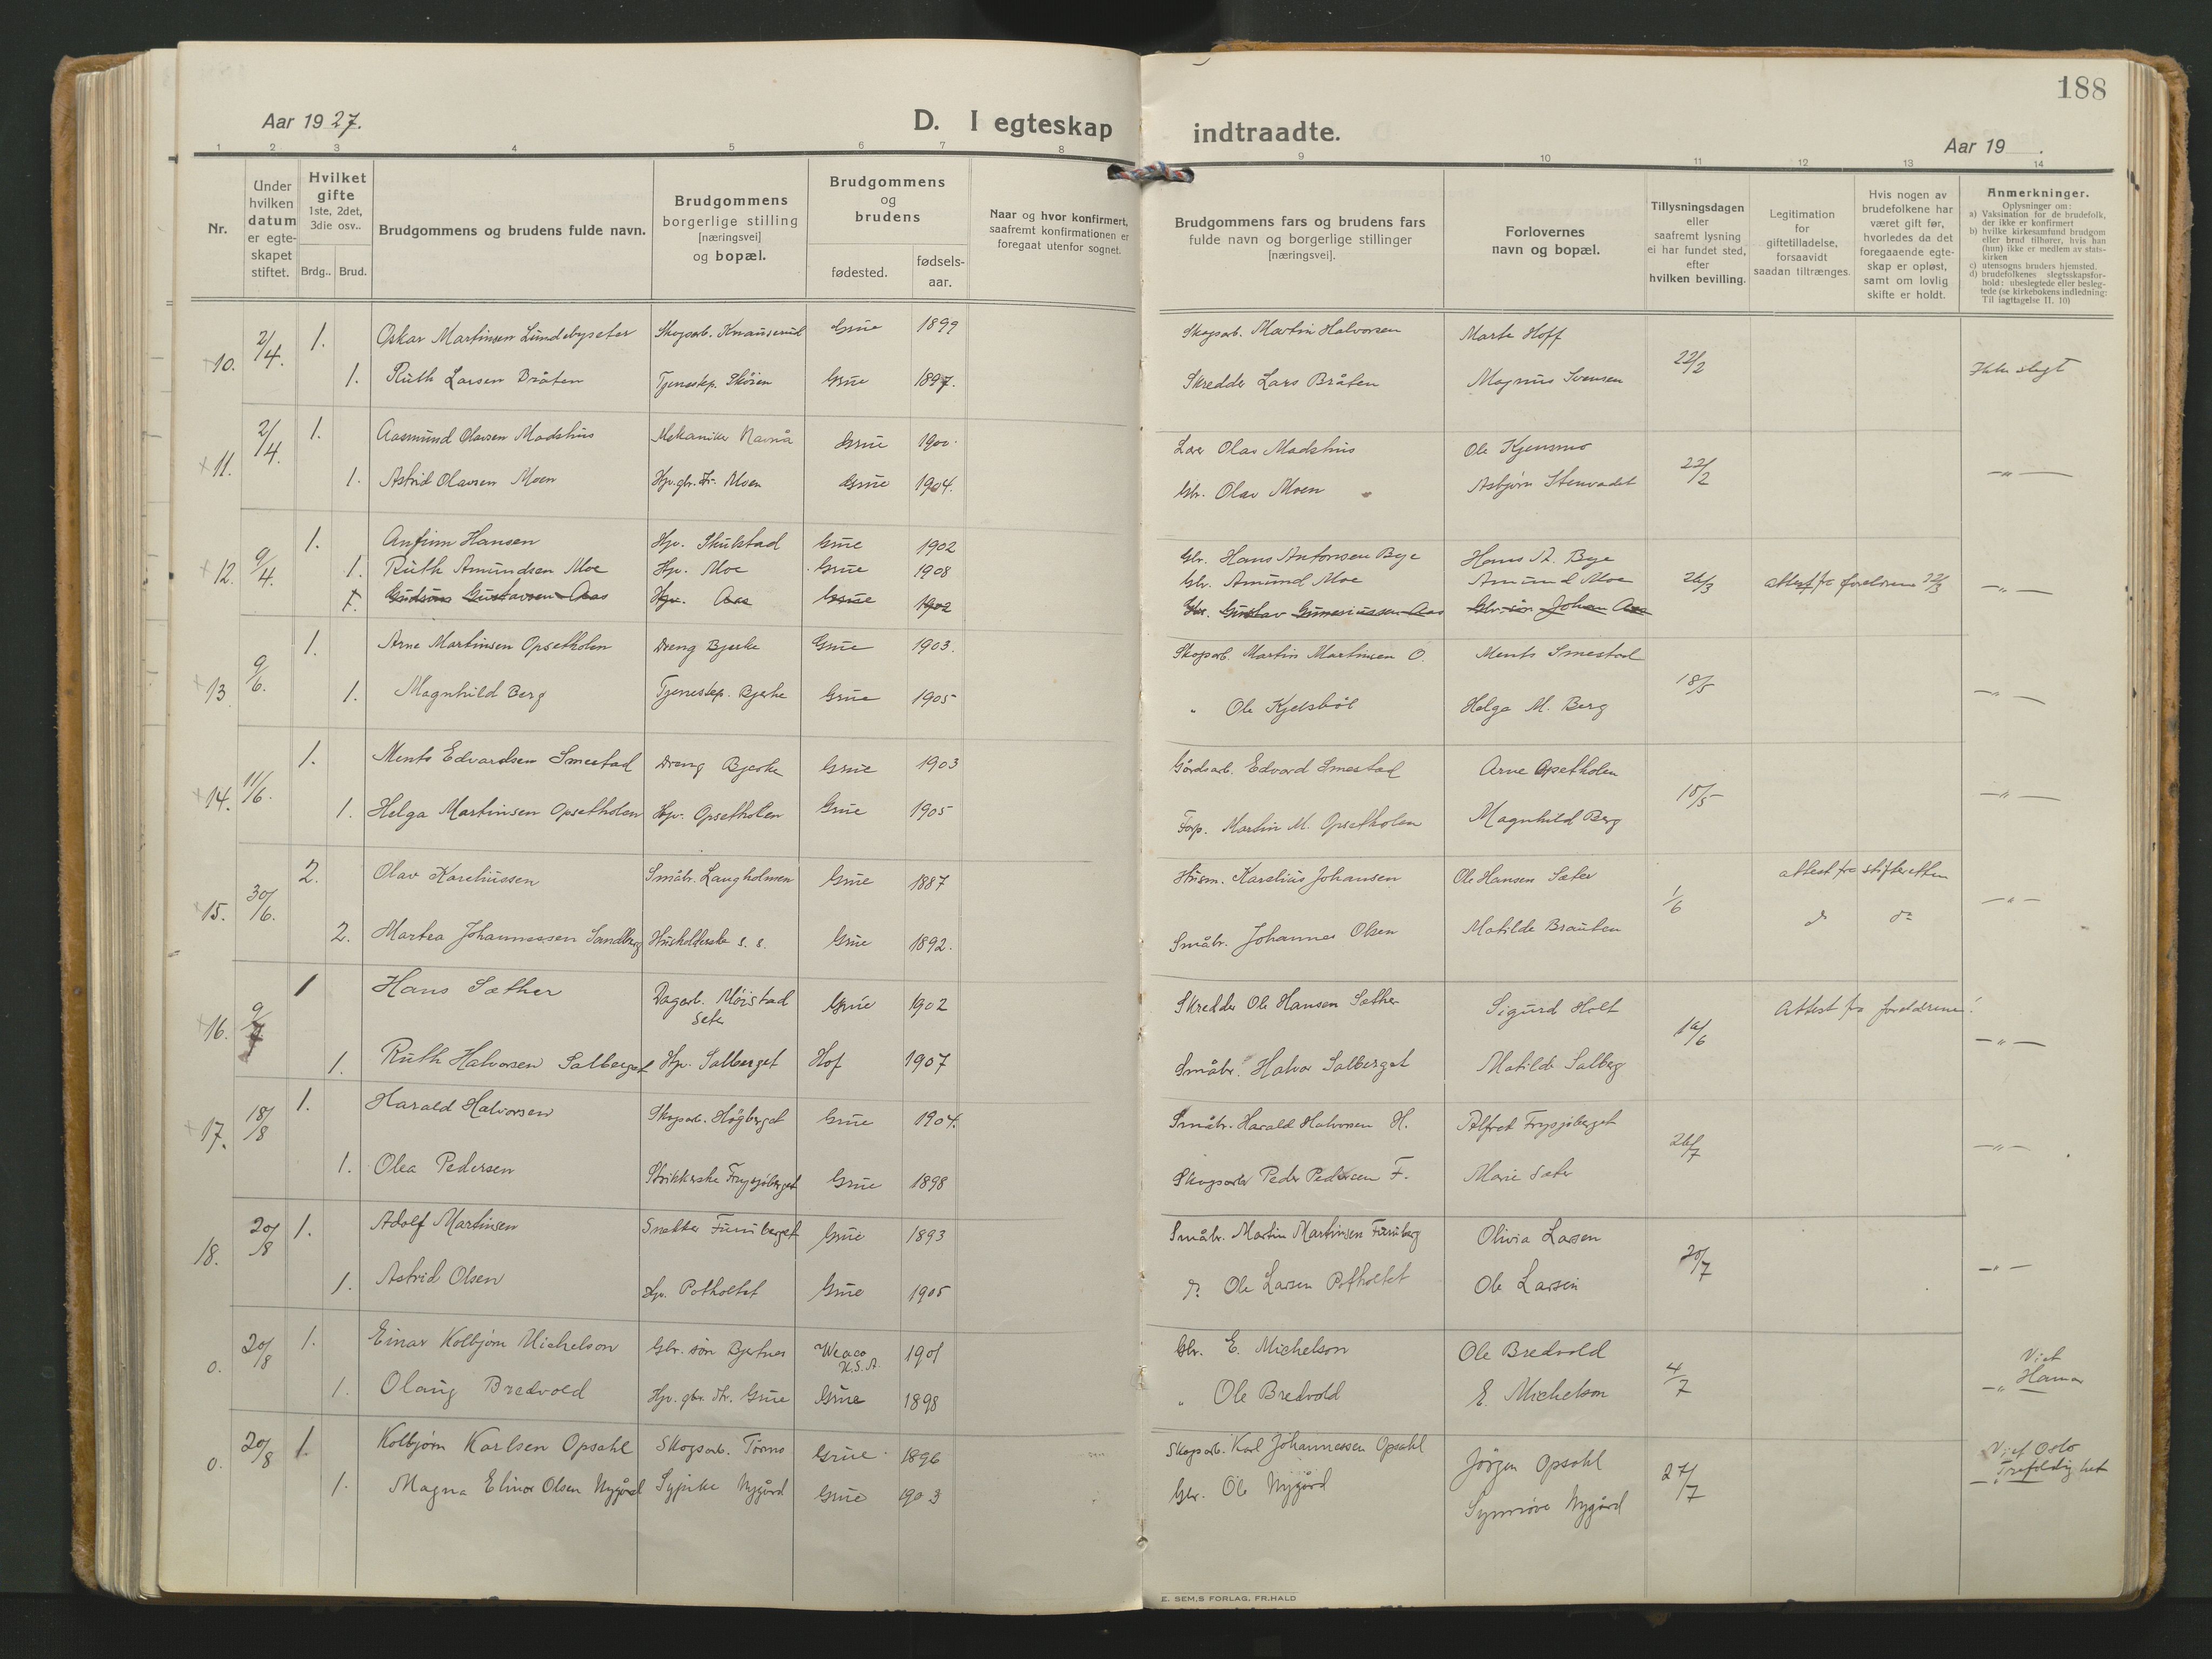 188
Aar 1927.
D. I egteskap indtraadte.
Aar 19 .
1 2 3 4 5 6 7 8 9 10 11 12 13 14
Nr.
Under hvilken datum er egte-skapet stiftet.
Hvilket gifte 1ste, 2det, 3die osv..
Brdg.. Brud.
Brudgommens og brudens fulde navn.
Brudgommens borgerlige stilling [næringsvei] og bopæl.
Brudgommens og brudens
fødested.
fødsels-aar.
Naar og hvor konfirmert, saafremt konfirmationen er foregaat utenfor sognet.
Brudgommens fars og brudens fars fulde navn og borgerlige stillinger [næringsvei].
Forlovernes navn og bopæl.
Tillysningsdagen eller saafremt lysning ei har fundet sted, efter hvilken bevilling.
Legitimation for giftetilladelse, forsaavidt saadan tiltrænges.
Hvis nogen av brudefolkene har været gift før, hvorledes da det foregaaende egte-skap er opløst, samt om lovlig skifte er holdt.
Anmerkninger.
Oplysninger om:
a) Vaksination for de brudefolk, der ikke er konfirmert
b) hvilke kirkesamfund brudgom eller brud tilhører, hvis han (hun) ikke er medlem av stats-kirken
c) utensogns bruders hjemsted.
d) brudefolkenes slegtsskapsfor-hold: ubeslegtede eller besleg-tede (se kirkebokens indledning: Til iagttagelse II. 10)
10. 2/4. 1. Oskar Martinsen Lundebyseter Skogsarb. Knauserud Grue 1899 Skogsarb. Martin Halvorsen Marta Hoff 22/2 Ikke slegt
1. Ruth Larsen Bråten Tjenestep. Skåren Grue 1897. Skredder Lars Bråten Magnus Svensen
11. 2/4. 1. Aasmund Olavsen Madshus Mekaniker Navnå Grue 1900. Lærer Olav Madshus Ole Kjensmo 22/2 —"—
1. Astrid Olavsen Moen Hjv. gbr. dr. Moen Grue 1904. Gbr. Olav Moen Asbjørn Stenvadet
12. 9/4. 1. Anfinn Hansen Hjv. Skulstad Grue 1902 Gbr. Hans Antonsen Bye Hans A. Bye
1. Ruth Amundsen Moe Hjv. Moe Grue 1908 Gbr. Amund Moe Amund Moe 26/3 attest fra forældrene 22/3 —"—
1. Gudrun Gustavsen Aas Hjv. Aas Grue 1902 Gbr. Gustav Gunneriussen Aas Gbr. søn Johan Aas
13 9/6. 1. Arne Martinsen Opsetholen Dreng Bjerke Grue 1903. Skogsarb. Martin Martinsen O. Ments Smestad 18/5 —"—
1. Magnhild Berg Tjenestep. Bjerke Grue 1905 " Ole Kjelsbøl Helga M. Berg
14. 11/6. 1. Ments Edvardsen Smestad Dreng Bjerke Grue 1903 Gårdsarb. Edvard Smestad Arne Opsetholen 18/5 —"—
1. Helga Martinsen Opsetholen Hjv. Opsetholen Grue 1905 Forp. Martin M. Opsetholen Magnhild Berg
15. 30/6. 2. Olav Kareliussen Småbr. Langholmen Grue 1887 Husm. Karelius Johansen Ole Hansen Sæter 1/6 attest fra skifteretten —"—
2. Martea Johannessen Sandberg Husholderske s. s. Grue 1892. Småbr. Johannes Olsen Matilde Brauten do do
16. 9/7 1 Hans Sæther Dagarb. Møistad Seter Grue 1902 Skredder Ole Hansen Sæther Sigurd Holt 16/6 Attest fra forældrene! —"—
1. Ruth Halvorsen Salberget Hjv. Salberget Hof 1907 Småbr. Halvor Salberget Matilde Salberg
17. 18/8 1. Harald Halvorsen Skogsarb. Högberget Grue 1904. Småbr. Harald Halvorsen H. Alfred Frysjøberget 26/7 —"—
1. Olea Pedersen Strikkerske Frysjøberget Grue 1898 Skogsarb. Peder Pedersen F. Marie Sæter
18. 20/8 1. Adolf Martinsen Snekker Furuberget Grue 1893 Småbr. Martin Martinsen Furuberg Olivia Larsen 20/7 —"—
1. Astrid Olsen Hjv. Potholtet Grue 1905 do Ole Larsen Potholtet Ole Larsen
0. 20/8 1. Einar Kolbjørn Michelson Gbr. søn Bjertnes Weaco U.S.A. 1901 Gbr. E. Michelson Ole Bredvold 4/7 Viet Hamar
1. Olaug Bredvold Hjv. gbr. dr. Grue Grue 1898 " Ole Bredvold E. Michelson —"—
0. 20/8 1. Kolbjørn Karlsen Opsahl Skogsarb. Törnes Grue 1896 Skogsarb. Karl Johannessen Opsahl Jörgen Opsahl 27/7 Viet Oslo Trefoldighet
1. Magna Elinor Olsen Nygård Sypike Nygård Grue 1903 Gbr. Ole Nygård Synnöve Nygård
E. SEM,S FORLAG, FR.HALD